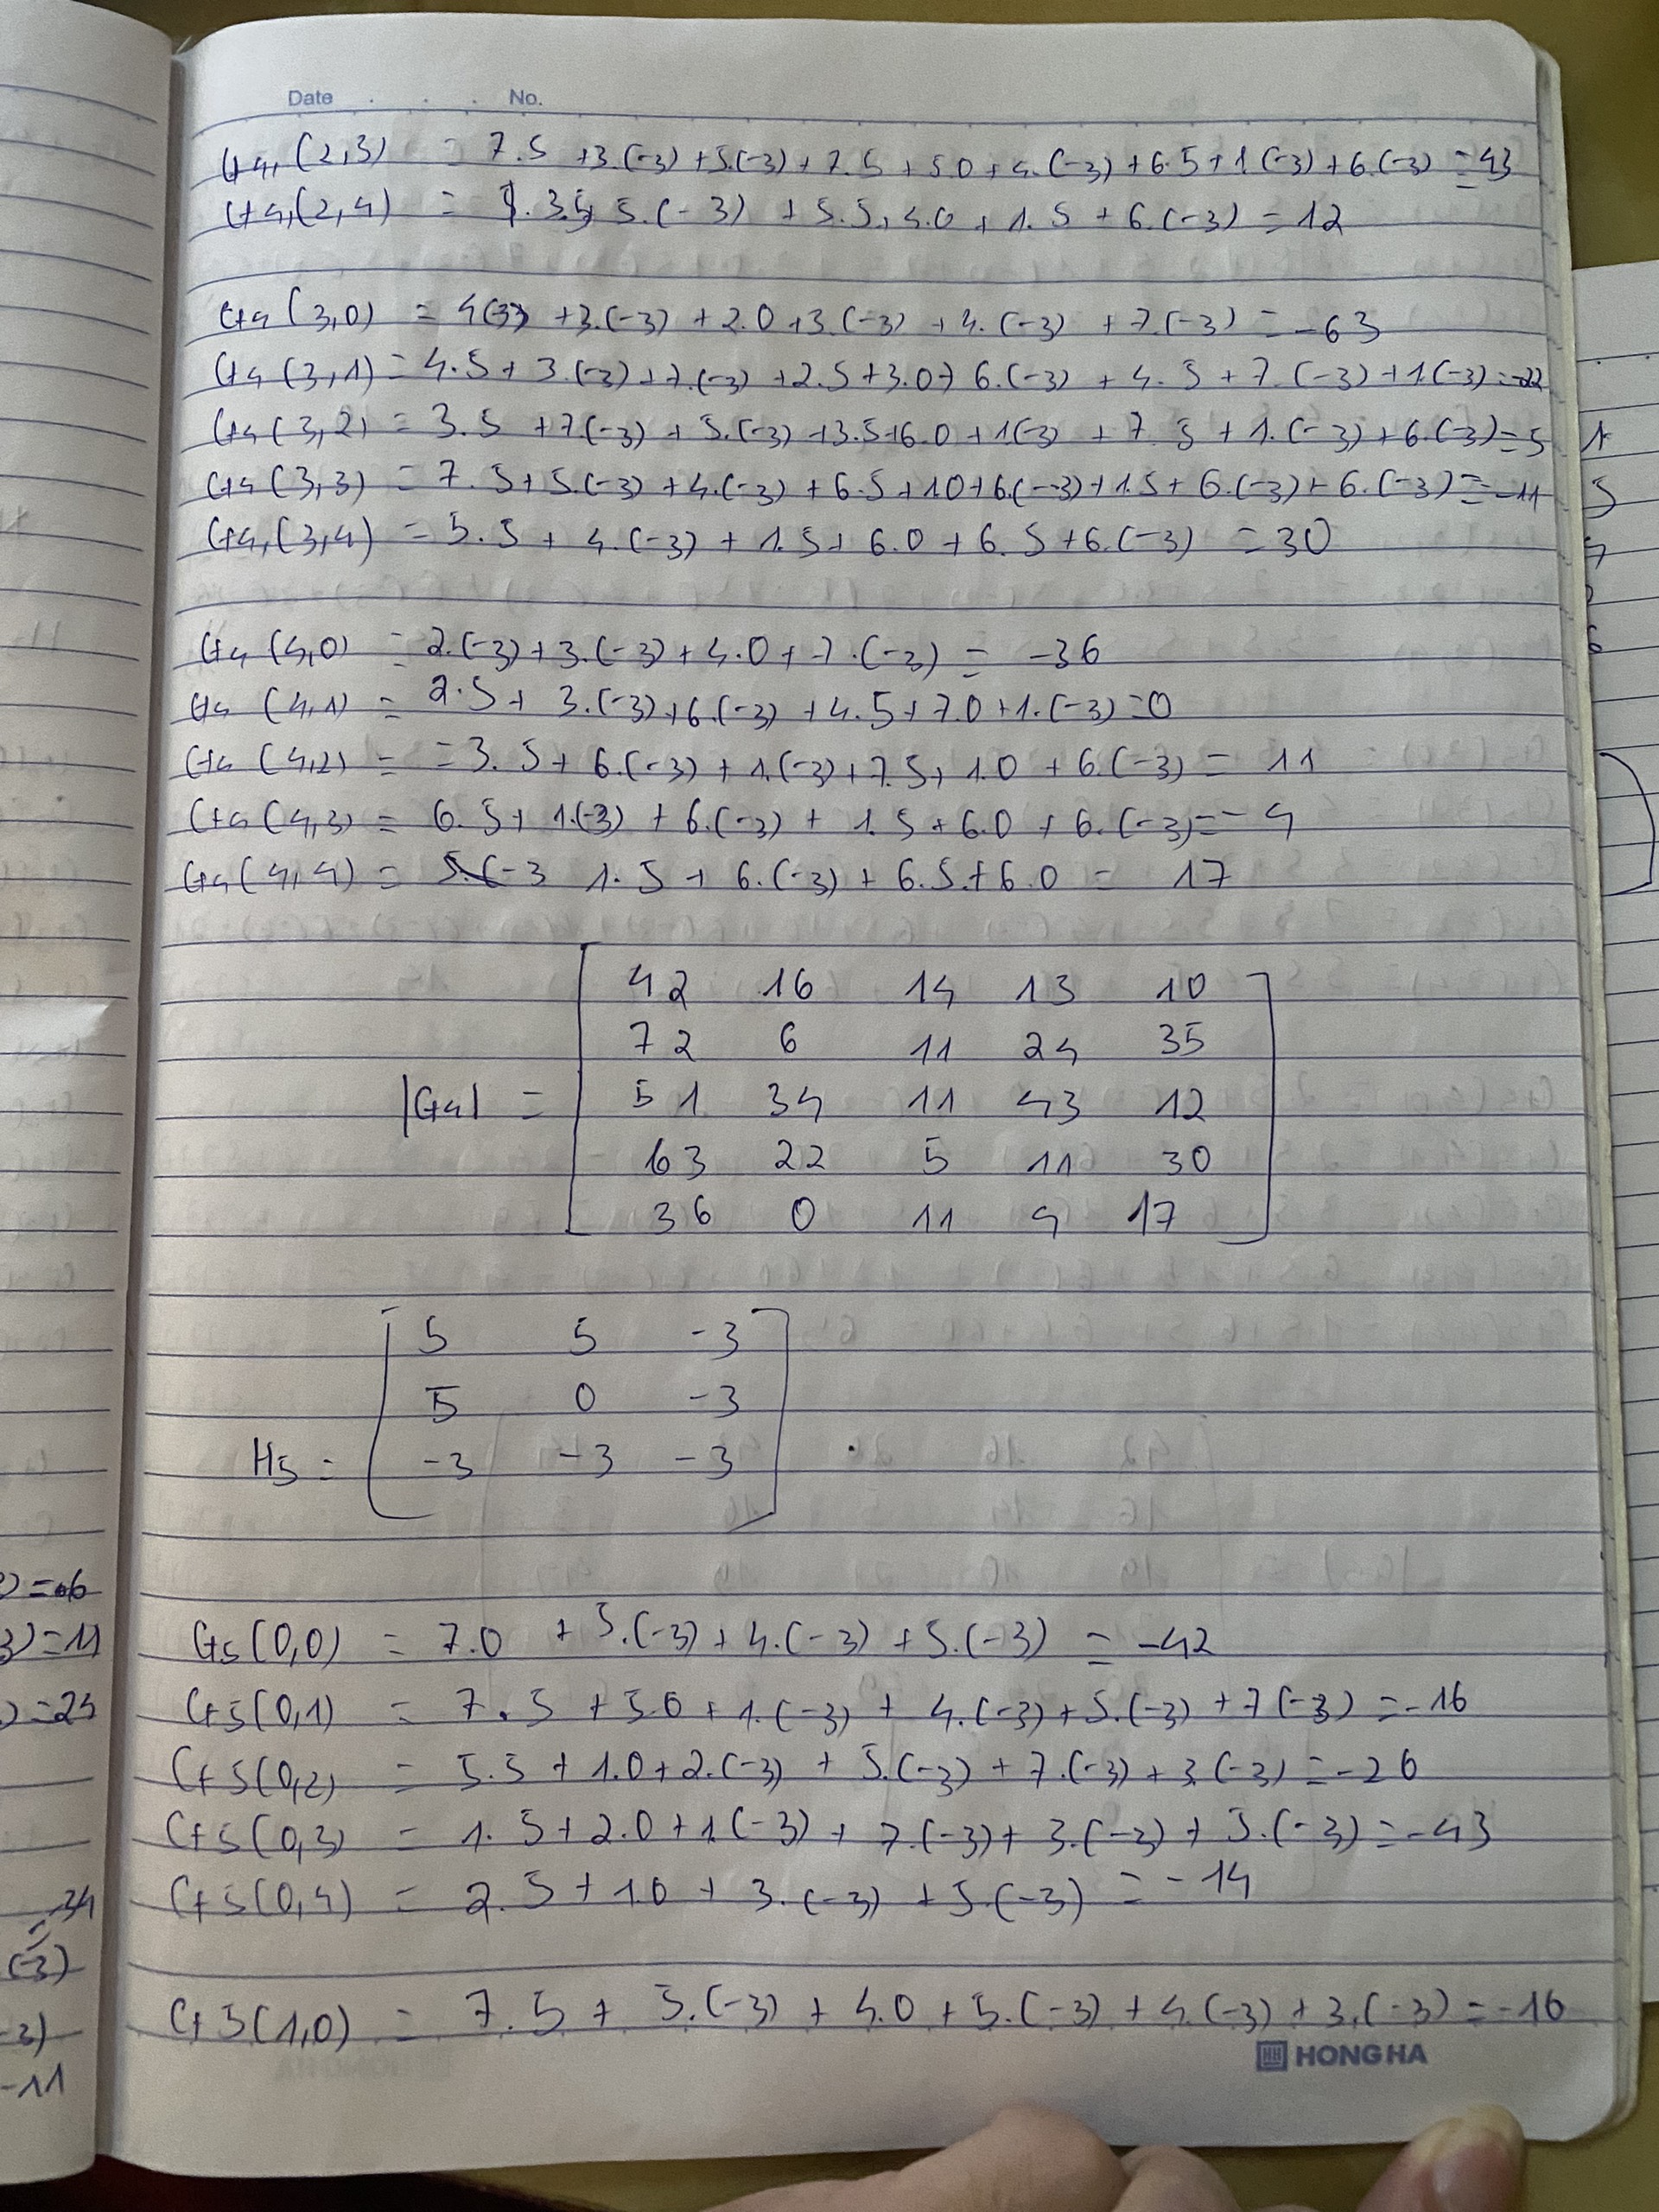 Date . . . No.
G4(2,3) = 7.5 +3.(-3) +5.(-3) + 7.5 + 5.0 + 4.(-3) + 6.5 + 1.(-3) + 6.(-3) = 43
G4(2,4) = 1.35, 5.(-3) + 5.5 + 4.0 + 1.5 + 6.(-3) = 12
G4(3,0) = 4(-3) +3.(-3) + 2.0 +3.(-3) + 4.(-3) + 7.(-3) = -63
G4(3,1) = 4.5 + 3.(-3) + 7.(-3) + 2.5 + 3.0 + 6.(-3) + 4.5 + 7.(-3) + 1.(-3) = -22
G4(3,2) = 3.5 + 7.(-3) + 5.(-3) + 3.5 + 6.0 + 1(-3) + 7.5 + 1.(-3) + 6.(-3) = 5
G4(3,3) = 7.5 + 5.(-3) + 4.(-3) + 6.5 + 1.0 + 6.(-3) + 1.5 + 6.(-3) + 6.(-3) = -11
G4(3,4) = 5.5 + 4.(-3) + 1.5 + 6.0 + 6.5 + 6.(-3) = 30
G4(4,0) = 2.(-3) + 3.(-3) + 4.0 + 7.(-3) = -36
G4(4,1) = 2.5 + 3.(-3) + 6.(-3) + 4.5 + 7.0 + 1.(-3) = 0
G4(4,2) = = 3.5 + 6.(-3) + 1.(-3) + 7.5 + 1.0 + 6.(-3) = 11
G4(4,3) = 6.5 + 1.(-3) + 6.(-3) + 1.5 + 6.0 + 6.(-3) = -4
G4(4,4) = 1.5 + 6.(-3) + 6.5 + 6.0 = 17
42 16 14 13 10
72 6 11 24 35
|G4| = 51 34 11 43 12
63 22 5 11 30
36 0 11 4 17
5 5 -3
5 0 -3
H5 = -3 -3 -3
G5(0,0) = 7.0 + 5.(-3) + 4.(-3) + 5.(-3) = -42
G5(0,1) = 7.5 + 5.0 + 1.(-3) + 4.(-3) + 5.(-3) + 7(-3) = -16
G5(0,2) = 5.5 + 1.0 + 2.(-3) + 5.(-3) + 7.(-3) + 3.(-3) = -26
G5(0,3) = 1.5 + 2.0 + 1.(-3) + 7.(-3) + 3.(-3) + 5.(-3) = -43
G5(0,4) = 2.5 + 1.0 + 3.(-3) + 5.(-3) = -14
G5(1,0) = 7.5 + 5.(-3) + 4.0 + 5.(-3) + 4.(-3) + 3.(-3) = -16
HONG HA